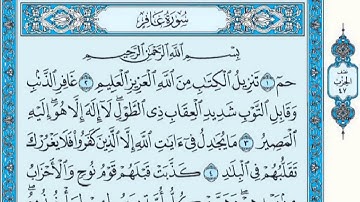 سُورَةُ غَافِرٍ
بِسْمِ اللَّهِ الرَّحْمَٰنِ الرَّحِيمِ
حمٓ ١ تَنزِيلُ الْكِتَٰبِ مِنَ اللَّهِ الْعَزِيزِ الْعَلِيمِ ٢ غَافِرِ الذَّنۢبِ
وَقَابِلِ التَّوْبِ شَدِيدِ الْعِقَابِ ذِي الطَّوْلِ ۖ لَآ إِلَٰهَ إِلَّا هُوَ ۖ إِلَيْهِ
الْمَصِيرُ ٣ مَا يُجَٰدِلُ فِيٓ ءَايَٰتِ اللَّهِ إِلَّا الَّذِينَ كَفَرُوا۟ فَلَا يَغْرُرْكَ
تَقَلُّبُهُمْ فِي الْبِلَٰدِ ٤ كَذَّبَتْ قَبْلَهُمْ قَوْمُ نُوحٍ وَالْأَحْزَابُ
نصف
الحزب
٤٧